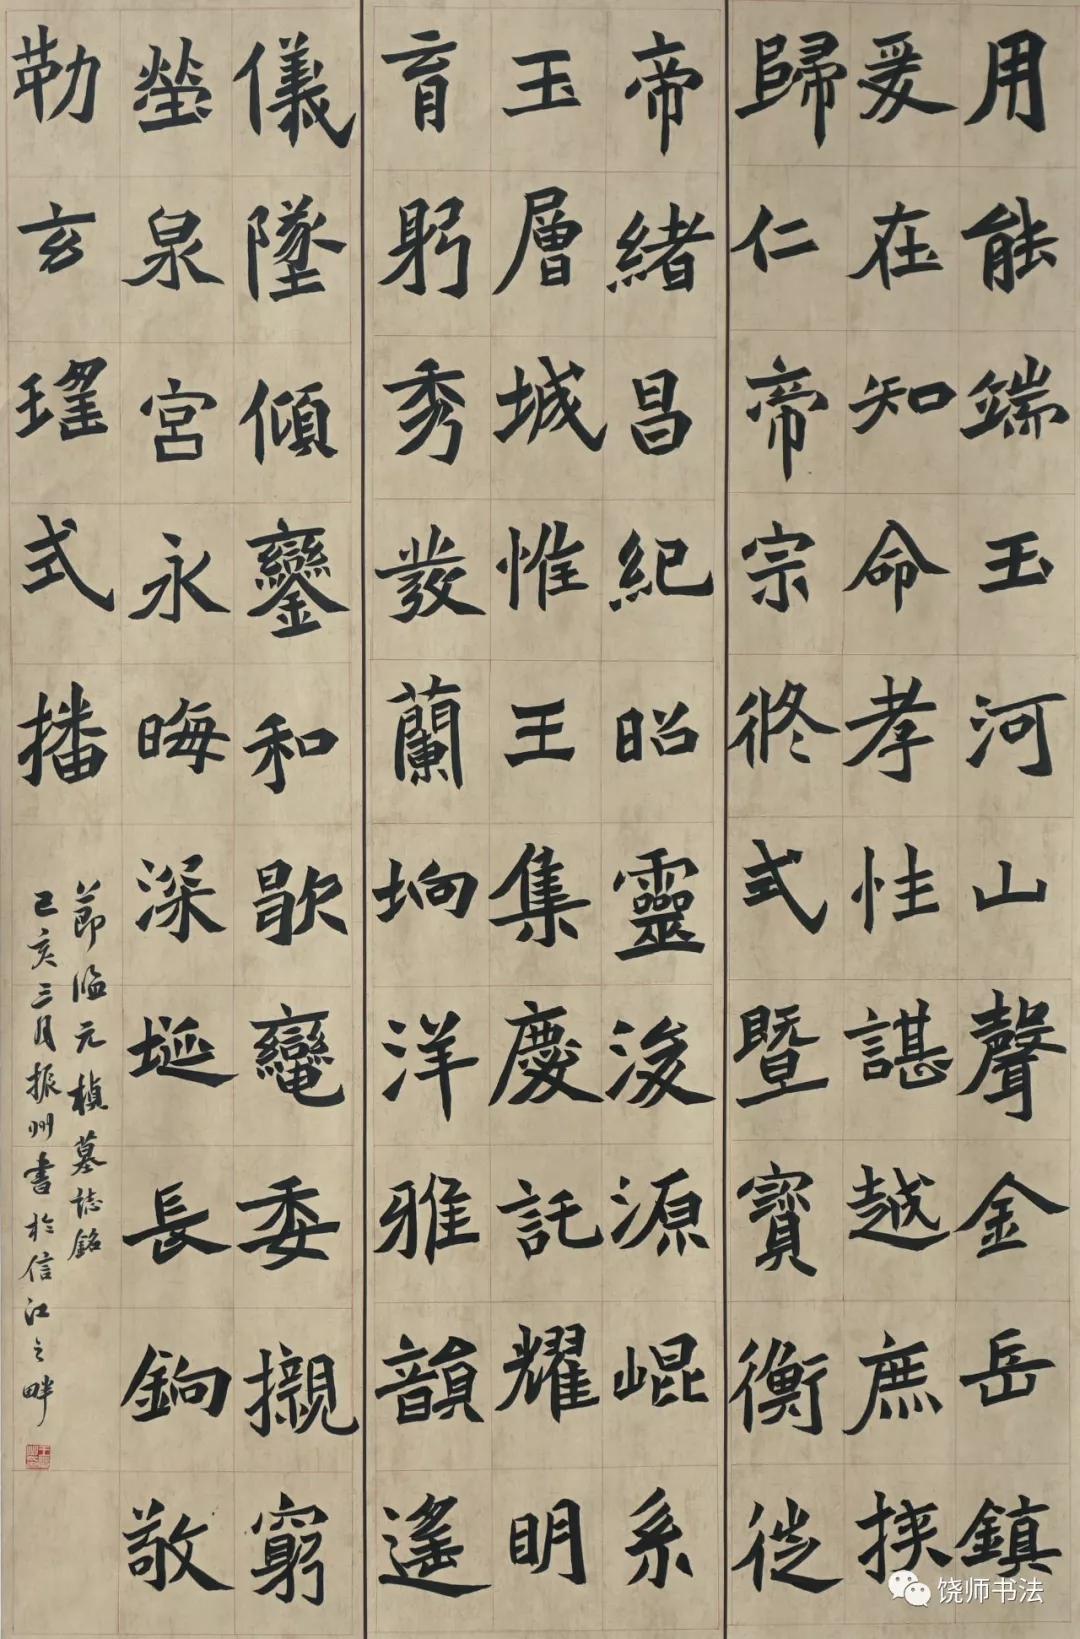 用能端玉河山聲金岳鎮
爰在知命孝性諶越庶族
歸仁帝宗攸式暨寶衡徙
帝緒昌紀昭靈浚源崐系
玉層城惟王集慶託耀明
育躬秀發蘭坰洋雅韻遙
儀墜傾鑾和歇轡委櫬窮
塋泉宮永晦深埏長銄敬
勒玄瑤式播
節臨元楨墓誌銘
己亥三月振州書於信江之畔
饶师书法